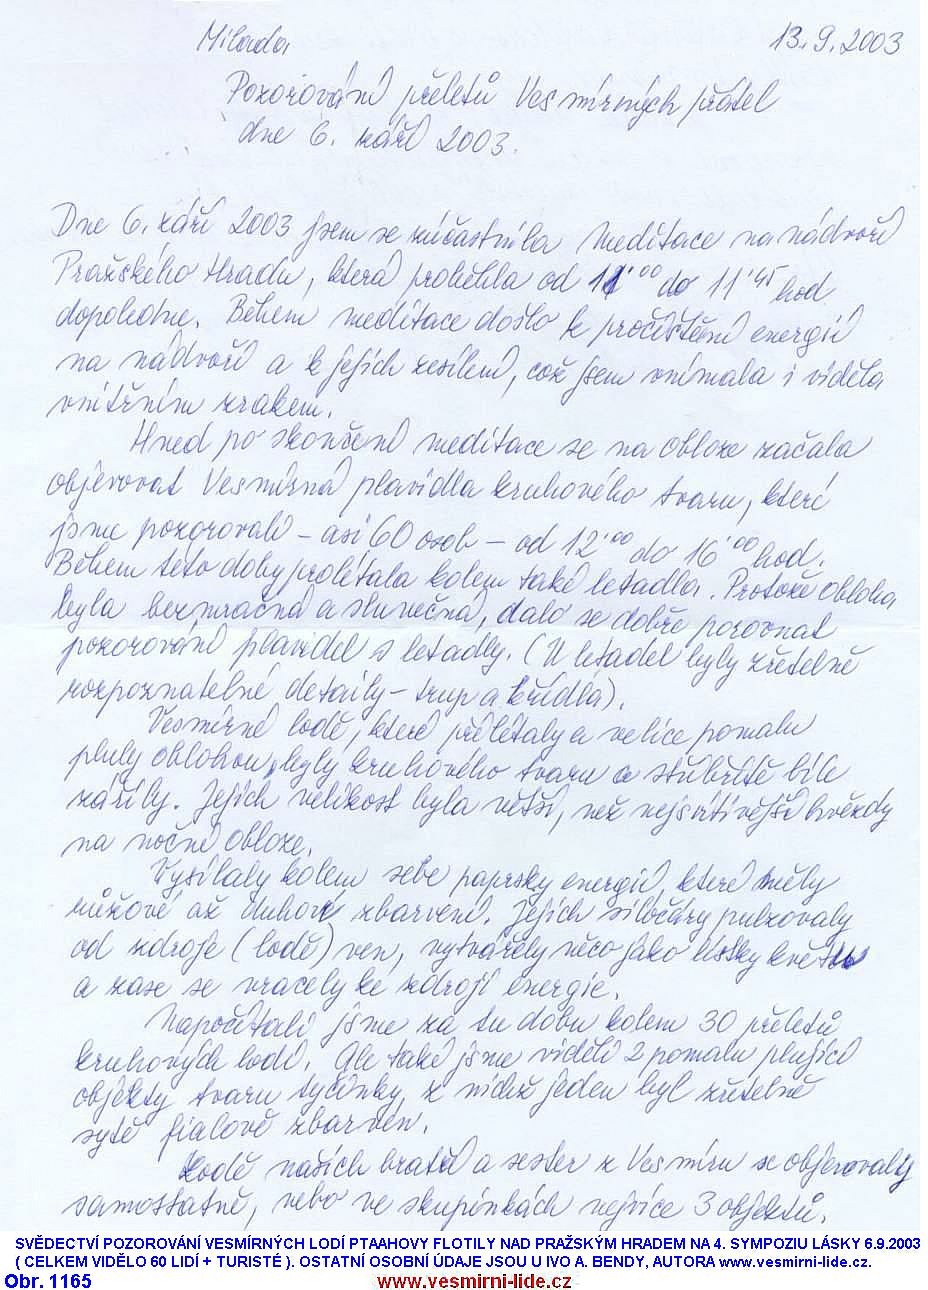 Milada 13.9.2003
Pozorování přeletů Vesmírných přátel
dne 6. září 2003.
Dne 6. září 2003 jsem se zúčastnila meditace na nádvoří
Pražského Hradu, která proběhla od 11.00 do 11.45 hod
dopoledne. Během meditace došlo k pročištění energií
na nádvoří a k jejich zesílení, což jsem vnímala i viděla
vnitřním zrakem.
Hned po skončení meditace se na obloze začala
objevovat Vesmírná plavidla kruhového tvaru, které
jsme pozorovali – asi 60 osob – od 12.00 do 16.00 hod.
Během této doby prolétala kolem také letadla. Protože obloha
byla bezmračná a slunečná, dalo se dobře porovnat
pozorování plavidel s letadly. (U letadel byly zřetelně
rozpoznatelné detaily – trup a křídla).
Vesmírné lodě, které přilétaly a velice pomalu
pluly oblohou, byly kruhového tvaru a stříbřitě bíle
zářily. Jejich velikost byla větší, než nejsvítivější hvězdy
na noční obloze.
Vysílaly kolem sebe paprsky energií, které měly
růžové až duhové zbarvení. Jejich siločáry pulzovaly
od zdroje (lodě) ven, vytvářely něco jako lístky květů
a zase se vracely ke zdroji energie.
Napočítali jsme za tu dobu kolem 30 přeletů
kruhových lodí. Ale také jsme viděli 2 pomalu plující
objekty tvaru tyčinky, z nichž jeden byl zřetelně
sytě fialově zbarven.
Lodě našich bratří a sester z Vesmíru se objevovaly
samostatně, nebo ve skupinkách nejvíce 3 objektů.
SVĚDECTVÍ POZOROVÁNÍ VESMÍRNÝCH LODÍ PTAAHOVY FLOTILY NAD PRAŽSKÝM HRADEM NA 4. SYMPOZIU LÁSKY 6.9.2003
( CELKEM VIDĚLO 60 LIDÍ + TURISTÉ ). OSTATNÍ OSOBNÍ ÚDAJE JSOU U IVO A. BENDY, AUTORA www.vesmirni-lide.cz.
Obr. 1165 www.vesmirni-lide.cz